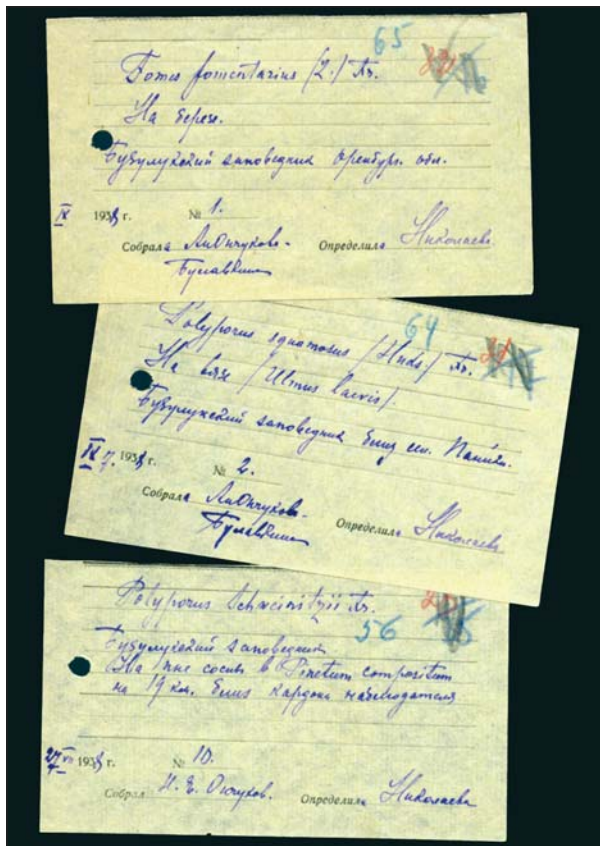 65
Fomes fomentarius (L.) Fr.
На березе.
Бузулукский заповедник Оренбург. обл.
IX 1938 г. № 1.
Собрала Определила Николаева
64
Polyporus squamosus (Huds.) Fr.
На вязе (Ulmus laevis).
Бузулукский заповедник близ
IX 7. 1938 г. № 2.
Собрала Определила Николаева
Polyporus Schweinitzii Fr.
56
Бузулукский заповедник
На пне сосны в Pinetum compositum
на 19 кв. близ кордона наблюдателя
27 VII 1938 г. № 10.
Собрал Определила Николаева